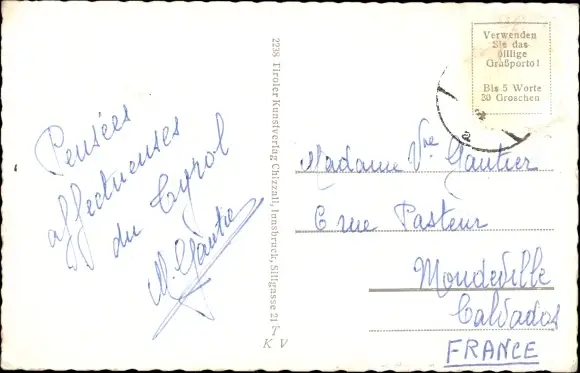 Pensées
affectueuses
du Tyrol
M. Gautier
2238 Tiroler Kunstverlag Chizzali, Innsbruck, Sillgasse 21
T
K V
Verwenden
Sie das
billige
Grußporto!
Bis 5 Worte
30 Groschen
a
Madame Vve Gautier
6 rue Pasteur
Mondeville
Calvados
FRANCE